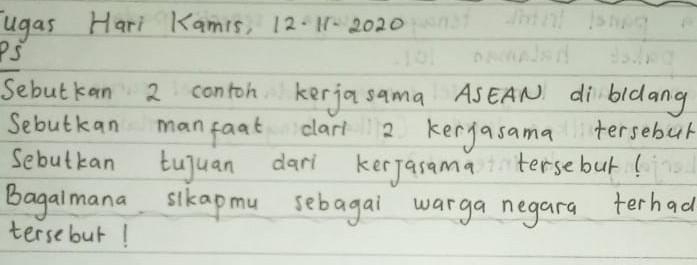 Tugas Hari Kamis, 12-11-2020
PS
Sebutkan 2 contoh kerjasama ASEAN di bidang
Sebutkan manfaat dari 2 kerjasama tersebut
Sebutkan tujuan dari kerjasama tersebut!
Bagaimana sikapmu sebagai warga negara terhad
tersebut!